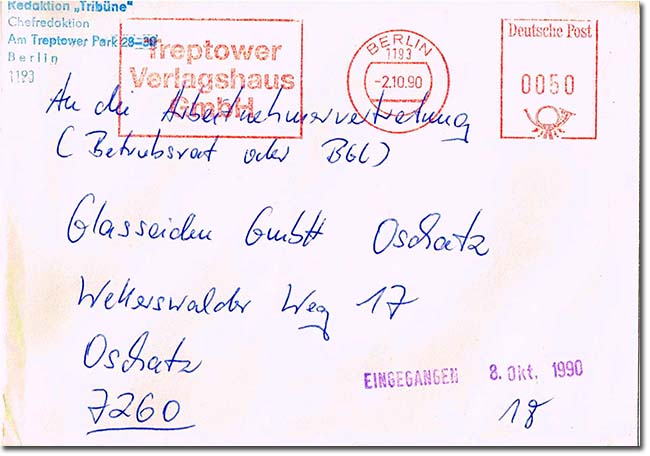 Redaktion „Tribüne“
Chefredaktion
Am Treptower Park 28-30
Berlin
1193
Treptower
Verlagshaus
GmbH
BERLIN
1193
-2.10.90
Deutsche Post
0050
An die Arbeitnehmervertretung
(Betriebsrat oder BGL)
Glasseiden GmbH Oschatz
Wellerswalder Weg 17
Oschatz
7260
EINGEGANGEN 8. Okt. 1990
18